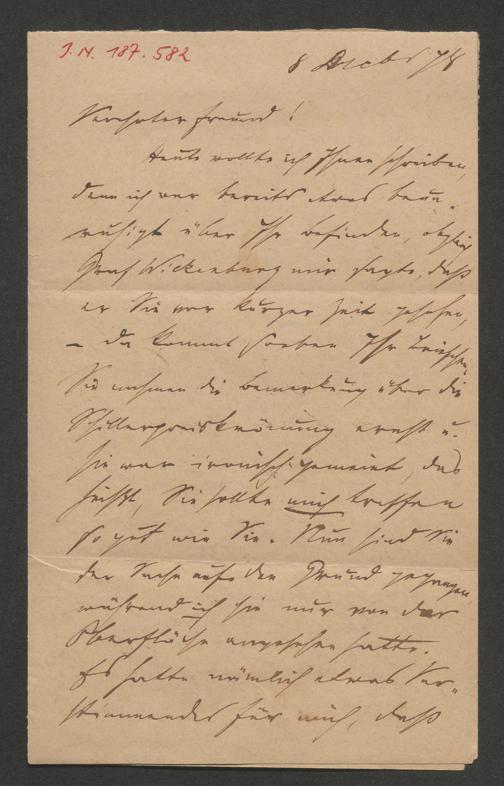 J. N. 187.582
8 Decbr 78
Verehrter Freund!
Heute wollte ich Ihnen schreiben,
denn ich war bereits etwas beun-
ruhigt über Ihr Befinden, obgleich
Graf Wickenburg mir sagte, daß
er Sie vor kurzer Zeit gesehen,
– da kommt soeben Ihr Briefchen.
Sie nahmen die Bemerkung über die
Schillerpreiskrönung ernst u.
sie war ironisch gemeint, das
heißt, Sie sollte mich treffen
so gut wie Sie. Nun sind Sie
der Sache auf den Grund gegangen,
während ich sie nur von der
Oberfläche angesehen hatte.
Es hatte nämlich etwas Ver-
stimmendes für mich, daß